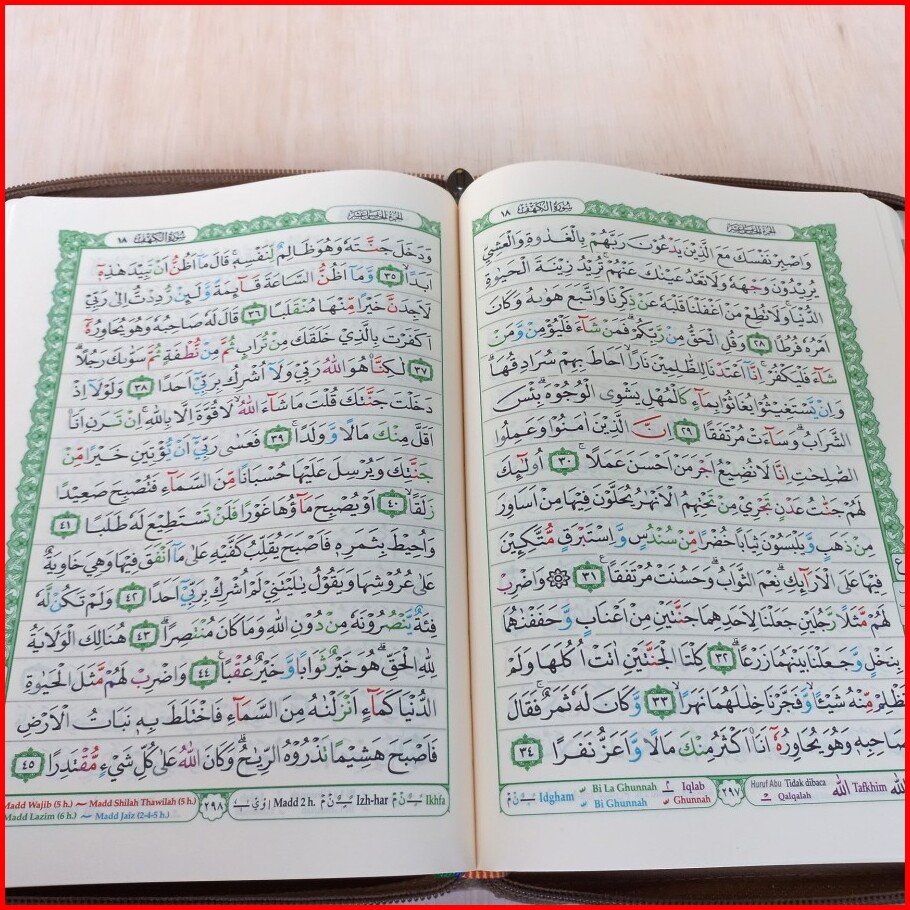 الجزء الخامس عشر
سورة الكهف ١٨
وَاصْبِرْ نَفْسَكَ مَعَ الَّذِيْنَ يَدْعُوْنَ رَبَّهُمْ بِالْغَدٰوةِ وَالْعَشِيِّ
يُرِيْدُوْنَ وَجْهَهٗ وَلَا تَعْدُ عَيْنٰكَ عَنْهُمْۚ تُرِيْدُ زِيْنَةَ الْحَيٰوةِ
الدُّنْيَاۚ وَلَا تُطِعْ مَنْ اَغْفَلْنَا قَلْبَهٗ عَنْ ذِكْرِنَا وَاتَّبَعَ هَوٰىهُ وَكَانَ
اَمْرُهٗ فُرُطًا ٢٨ وَقُلِ الْحَقُّ مِنْ رَّبِّكُمْۗ فَمَنْ شَاۤءَ فَلْيُؤْمِنْ وَّمَنْ
شَاۤءَ فَلْيَكْفُرْۚ اِنَّآ اَعْتَدْنَا لِلظّٰلِمِيْنَ نَارًاۙ اَحَاطَ بِهِمْ سُرَادِقُهَاۗ
وَاِنْ يَّسْتَغِيْثُوْا يُغَاثُوْا بِمَاۤءٍ كَالْمُهْلِ يَشْوِى الْوُجُوْهَۗ بِئْسَ
الشَّرَابُۗ وَسَاۤءَتْ مُرْتَفَقًا ٢٩ اِنَّ الَّذِيْنَ اٰمَنُوْا وَعَمِلُوا
الصّٰلِحٰتِ اِنَّا لَا نُضِيْعُ اَجْرَ مَنْ اَحْسَنَ عَمَلًاۚ ٣٠ اُولٰۤىِٕكَ
لَهُمْ جَنّٰتُ عَدْنٍ تَجْرِيْ مِنْ تَحْتِهِمُ الْاَنْهٰرُ يُحَلَّوْنَ فِيْهَا مِنْ اَسَاوِرَ
مِنْ ذَهَبٍ وَّيَلْبَسُوْنَ ثِيَابًا خُضْرًا مِّنْ سُنْدُسٍ وَّاِسْتَبْرَقٍ مُّتَّكِـِٕيْنَ
فِيْهَا عَلَى الْاَرَاۤىِٕكِۗ نِعْمَ الثَّوَابُۗ وَحَسُنَتْ مُرْتَفَقًا ࣖ ٣١ ۞ وَاضْرِبْ
لَهُمْ مَّثَلًا رَّجُلَيْنِ جَعَلْنَا لِاَحَدِهِمَا جَنَّتَيْنِ مِنْ اَعْنَابٍ وَّحَفَفْنٰهُمَا
بِنَخْلٍ وَّجَعَلْنَا بَيْنَهُمَا زَرْعًاۗ ٣٢ كِلْتَا الْجَنَّتَيْنِ اٰتَتْ اُكُلَهَا وَلَمْ
تَظْلِمْ مِّنْهُ شَيْـًٔاۙ وَّفَجَّرْنَا خِلٰلَهُمَا نَهَرًاۙ ٣٣ وَّكَانَ لَهٗ ثَمَرٌۚ فَقَالَ
لِصَاحِبِهٖ وَهُوَ يُحَاوِرُهٗٓ اَنَا۠ اَكْثَرُ مِنْكَ مَالًا وَّاَعَزُّ نَفَرًا ٣٤
Idgham Bi La Ghunnah Iqlab
Bi Ghunnah Ghunnah
٢٩٧
Huruf Abu Tidak dibaca
Qalqalah
الله Tafkhim
الجزء الخامس عشر
سورة الكهف ١٨
وَدَخَلَ جَنَّتَهٗ وَهُوَ ظَالِمٌ لِّنَفْسِهٖۚ قَالَ مَآ اَظُنُّ اَنْ تَبِيْدَ هٰذِهٖٓ
اَبَدًاۙ ٣٥ وَّمَآ اَظُنُّ السَّاعَةَ قَاۤىِٕمَةً وَّلَىِٕنْ رُّدِدْتُّ اِلٰى رَبِّيْ
لَاَجِدَنَّ خَيْرًا مِّنْهَا مُنْقَلَبًا ٣٦ قَالَ لَهٗ صَاحِبُهٗ وَهُوَ يُحَاوِرُهٗٓ
اَكَفَرْتَ بِالَّذِيْ خَلَقَكَ مِنْ تُرَابٍ ثُمَّ مِنْ نُّطْفَةٍ ثُمَّ سَوّٰىكَ رَجُلًاۗ
٣٧ لٰكِنَّا۠ هُوَ اللّٰهُ رَبِّيْ وَلَآ اُشْرِكُ بِرَبِّيْٓ اَحَدًا ٣٨ وَلَوْلَآ اِذْ
دَخَلْتَ جَنَّتَكَ قُلْتَ مَا شَاۤءَ اللّٰهُ ۙ لَا قُوَّةَ اِلَّا بِاللّٰهِ ۚ اِنْ تَرَنِ اَنَا۠
اَقَلَّ مِنْكَ مَالًا وَّوَلَدًاۚ ٣٩ فَعَسٰى رَبِّيْٓ اَنْ يُّؤْتِيَنِ خَيْرًا مِّنْ
جَنَّتِكَ وَيُرْسِلَ عَلَيْهَا حُسْبَانًا مِّنَ السَّمَاۤءِ فَتُصْبِحَ صَعِيْدًا
زَلَقًاۙ ٤٠ اَوْ يُصْبِحَ مَاۤؤُهَا غَوْرًا فَلَنْ تَسْتَطِيْعَ لَهٗ طَلَبًا ٤١
وَاُحِيْطَ بِثَمَرِهٖ فَاَصْبَحَ يُقَلِّبُ كَفَّيْهِ عَلٰى مَآ اَنْفَقَ فِيْهَا وَهِيَ خَاوِيَةٌ
عَلٰى عُرُوْشِهَا وَيَقُوْلُ يٰلَيْتَنِيْ لَمْ اُشْرِكْ بِرَبِّيْٓ اَحَدًا ٤٢ وَلَمْ تَكُنْ لَّهٗ
فِئَةٌ يَّنْصُرُوْنَهٗ مِنْ دُوْنِ اللّٰهِ وَمَا كَانَ مُنْتَصِرًاۗ ٤٣ هُنَالِكَ الْوَلَايَةُ
لِلّٰهِ الْحَقِّۗ هُوَ خَيْرٌ ثَوَابًا وَّخَيْرٌ عُقْبًا ࣖ ٤٤ وَاضْرِبْ لَهُمْ مَّثَلَ الْحَيٰوةِ
الدُّنْيَا كَمَاۤءٍ اَنْزَلْنٰهُ مِنَ السَّمَاۤءِ فَاخْتَلَطَ بِهٖ نَبَاتُ الْاَرْضِ
فَاَصْبَحَ هَشِيْمًا تَذْرُوْهُ الرِّيٰحُۗ وَكَانَ اللّٰهُ عَلٰى كُلِّ شَيْءٍ مُّقْتَدِرًا ٤٥
Madd Wajib (5 h.) Madd Shilah Thawilah (5 h.)
Madd Lazim (6 h.) Madd Jaiz (2-4-5 h.)
٢٩٨
Madd 2 h. Izh-har Ikhfa